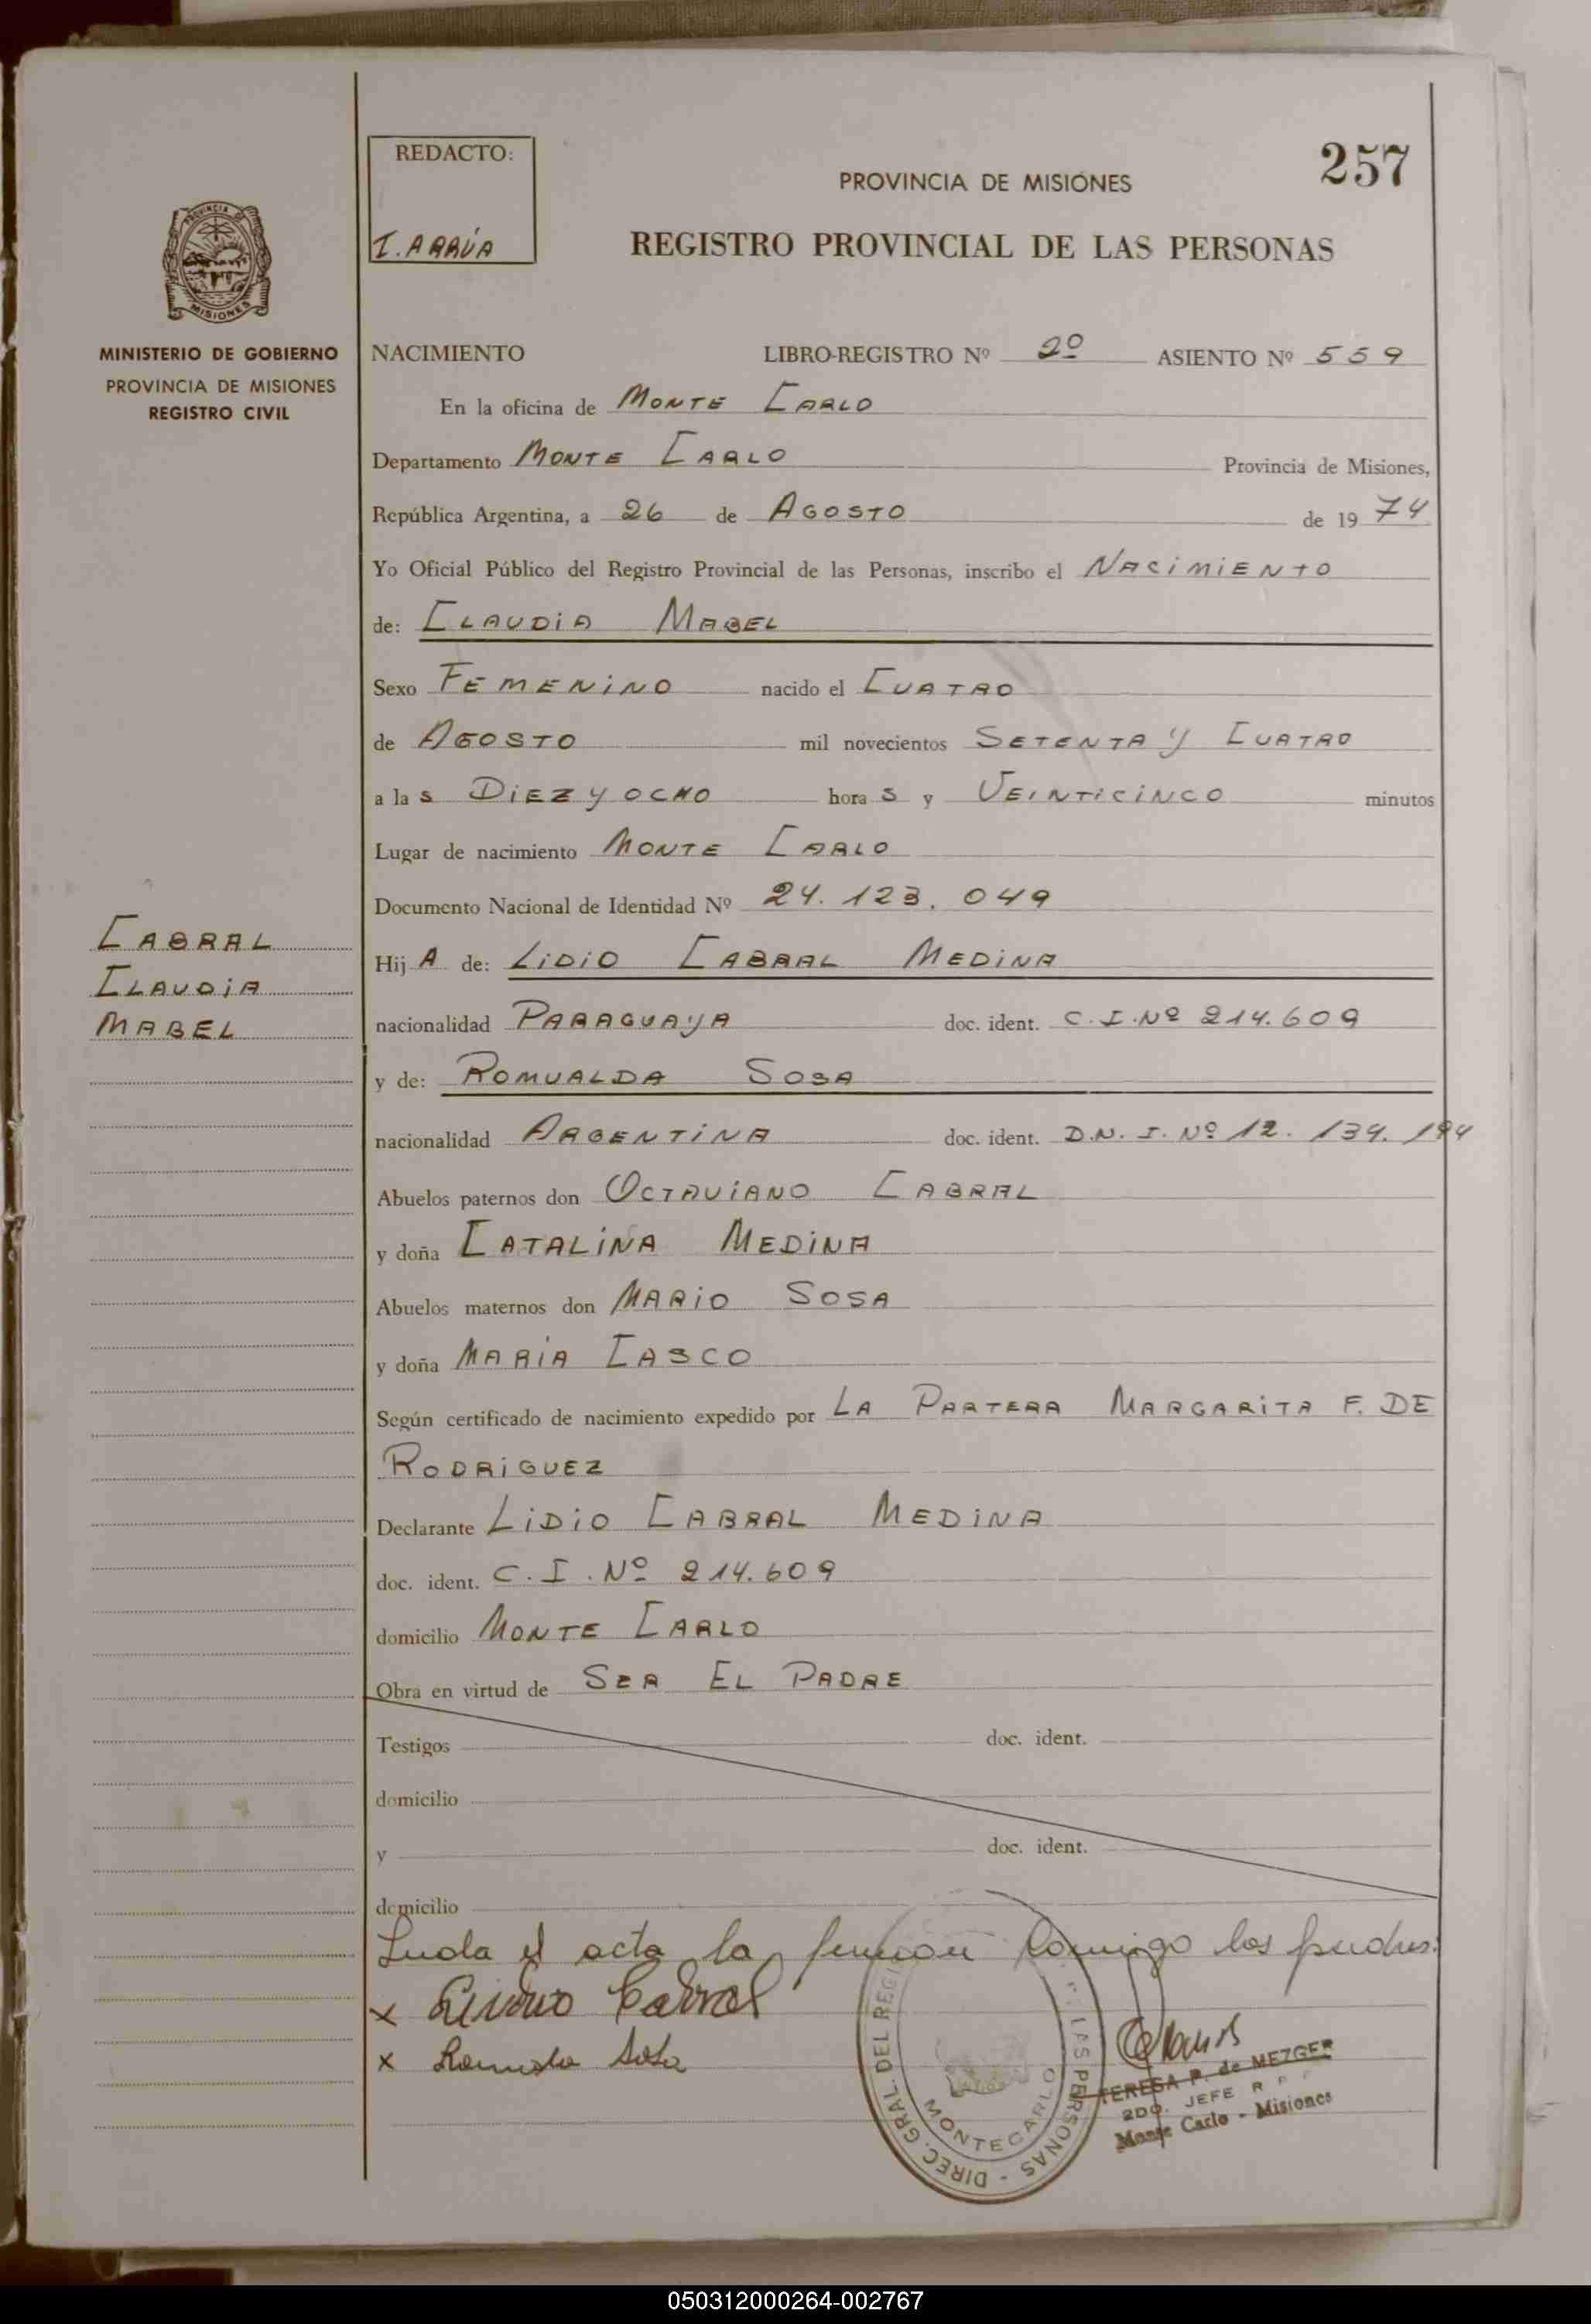 REDACTO:
I. ARRÚA
257
PROVINCIA DE MISIONES
REGISTRO PROVINCIAL DE LAS PERSONAS
PROVINCIA DE
MISIONES
MINISTERIO DE GOBIERNO
PROVINCIA DE MISIONES
REGISTRO CIVIL
NACIMIENTO LIBRO-REGISTRO Nº 2º ASIENTO Nº 559
En la oficina de MONTE CARLO
Departamento MONTE CARLO Provincia de Misiones,
República Argentina, a 26 de AGOSTO de 1974
Yo Oficial Público del Registro Provincial de las Personas, inscribo el NACIMIENTO
de: CLAUDIA MABEL
Sexo FEMENINO nacido el CUATRO
de AGOSTO mil novecientos SETENTA Y CUATRO
a las DIEZ Y OCHO horas y VEINTICINCO minutos
Lugar de nacimiento MONTE CARLO
Documento Nacional de Identidad Nº 24.123.049
CABRAL
CLAUDIA
MABEL
HijA de: LIDIO CABRAL MEDINA
nacionalidad PARAGUAYA doc. ident. C.I.Nº 214.609
y de: ROMUALDA SOSA
nacionalidad ARGENTINA doc. ident. D.N.I. Nº 12.134.194
Abuelos paternos don OCTAVIANO CABRAL
y doña CATALINA MEDINA
Abuelos maternos don MARIO SOSA
y doña MARÍA CASCO
Según certificado de nacimiento expedido por LA PARTERA MARGARITA F. DE
RODRIGUEZ
Declarante LIDIO CABRAL MEDINA
doc. ident. C.I.Nº 214.609
domicilio MONTE CARLO
Obra en virtud de SER EL PADRE
Testigos doc. ident.
domicilio
y doc. ident.
domicilio
el acta la conmigo los padres.
x Cabral
x Sosa
DIREC. GRAL. DEL REGI LAS PERSONAS -
MONTECARLO
TERESA P. de METZGER
2DO. JEFE R P P
Monte Carlo - Misiones
050312000264-002767